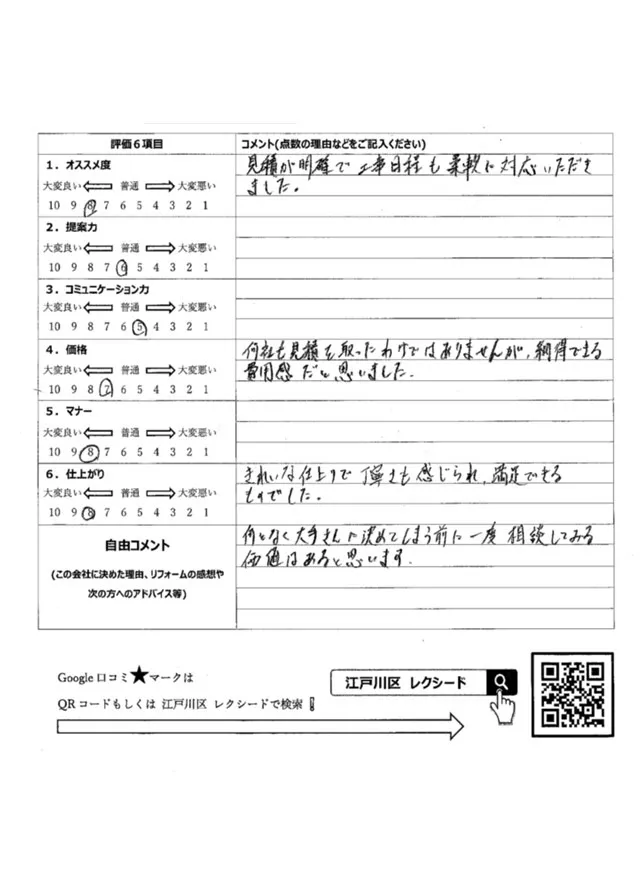 評価6項目
コメント(点数の理由などをご記入ください)
1．オススメ度
大変良い 普通 大変悪い
10 9 8 7 6 5 4 3 2 1
見積が明確で工事日程も柔軟に対応いただき
ました。
2．提案力
大変良い 普通 大変悪い
10 9 8 7 6 5 4 3 2 1
3．コミュニケーション力
大変良い 普通 大変悪い
10 9 8 7 6 5 4 3 2 1
4．価格
大変良い 普通 大変悪い
10 9 8 7 6 5 4 3 2 1
何社も見積を取ったわけではありませんが、納得できる
費用感だと思いました。
5．マナー
大変良い 普通 大変悪い
10 9 8 7 6 5 4 3 2 1
6．仕上がり
大変良い 普通 大変悪い
10 9 8 7 6 5 4 3 2 1
きれいな仕上りで丁寧さも感じられ、満足できる
ものでした。
自由コメント
(この会社に決めた理由、リフォームの感想や
次の方へのアドバイス等)
何となく大手さんに決めてしまう前に一度相談してみる
価値はあると思います。
Google口コミ★マークは
QRコードもしくは 江戸川区 レクシードで検索！
江戸川区 レクシード